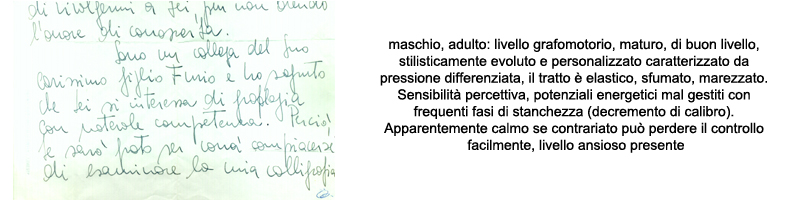 di rivolgermi a Lei, pur non avendo
l'onore di conoscerla.
Sono un collega del Suo
carissimo figlio Furio e ho saputo
che lei si interessa di grafologia
con notevole competenza. Perciò
le sarò grato se vorrà compiacersi
di esaminare la mia calligrafia
maschio, adulto: livello grafomotorio, maturo, di buon livello,
stilisticamente evoluto e personalizzato caratterizzato da
pressione differenziata, il tratto è elastico, sfumato, marezzato.
Sensibilità percettiva, potenziali energetici mal gestiti con
frequenti fasi di stanchezza (decremento di calibro).
Apparentemente calmo se contrariato può perdere il controllo
facilmente, livello ansioso presente